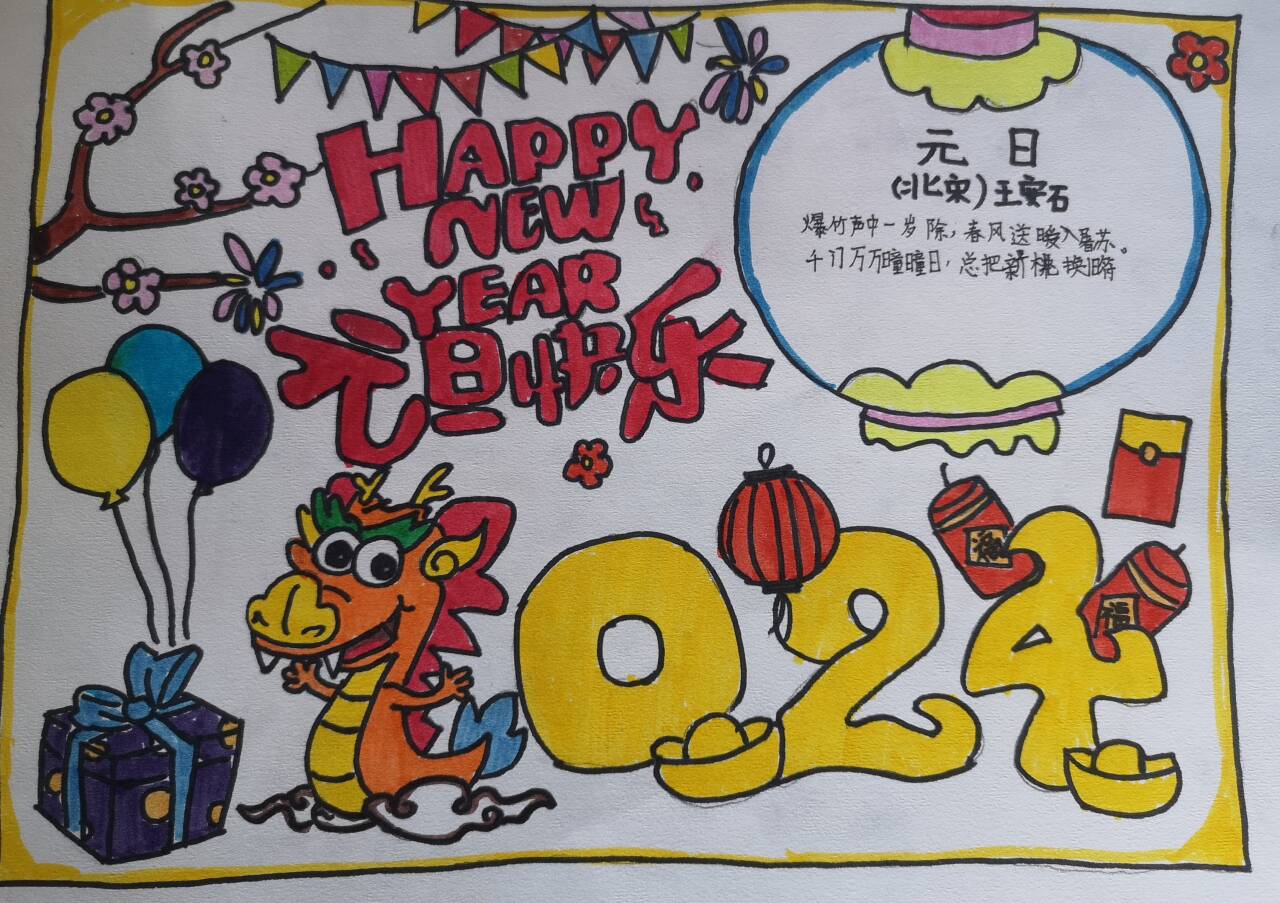 HAPPY
NEW
YEAR
元旦快乐
元日
(北宋)王安石
爆竹声中一岁除,春风送暖入屠苏。
千门万万瞳瞳日,总把新桃换旧符
024
福
福